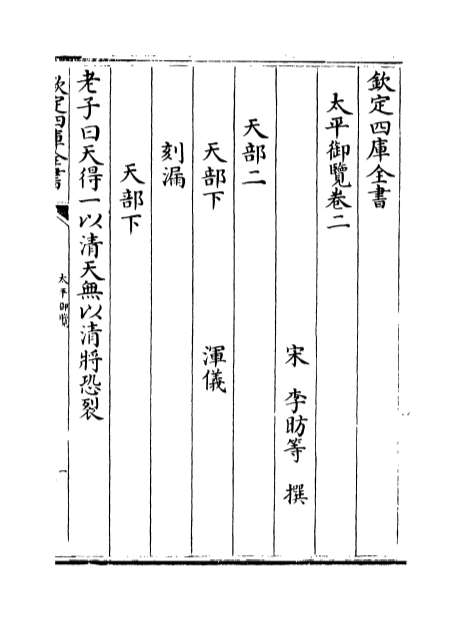 欽定四庫全書
太平御覽卷二
宋 李昉等 撰
天部二
天部下 渾儀
刻漏
天部下
老子曰天得一以清天無以清將恐裂
欽定四庫全書
太平御覽
一